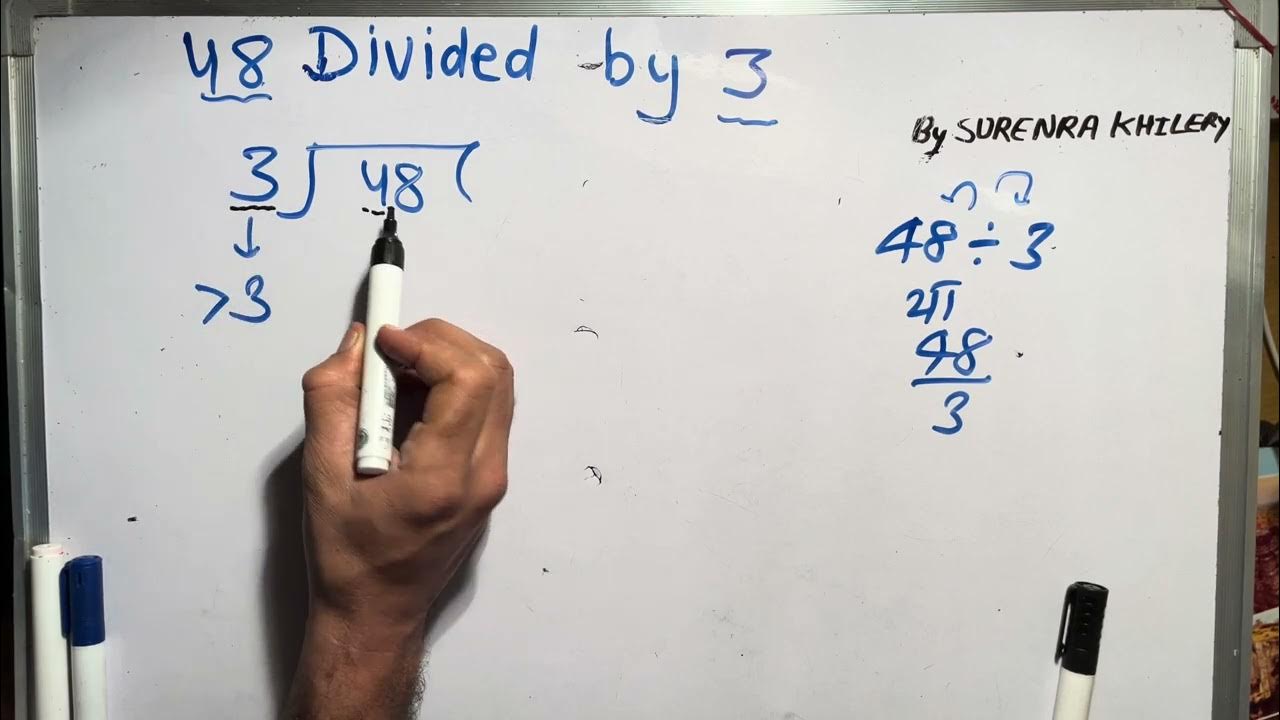 48 Divided by 3
By SURENRA KHILERY
3 ) 48 (
>3
48 ÷ 3
या
48
3